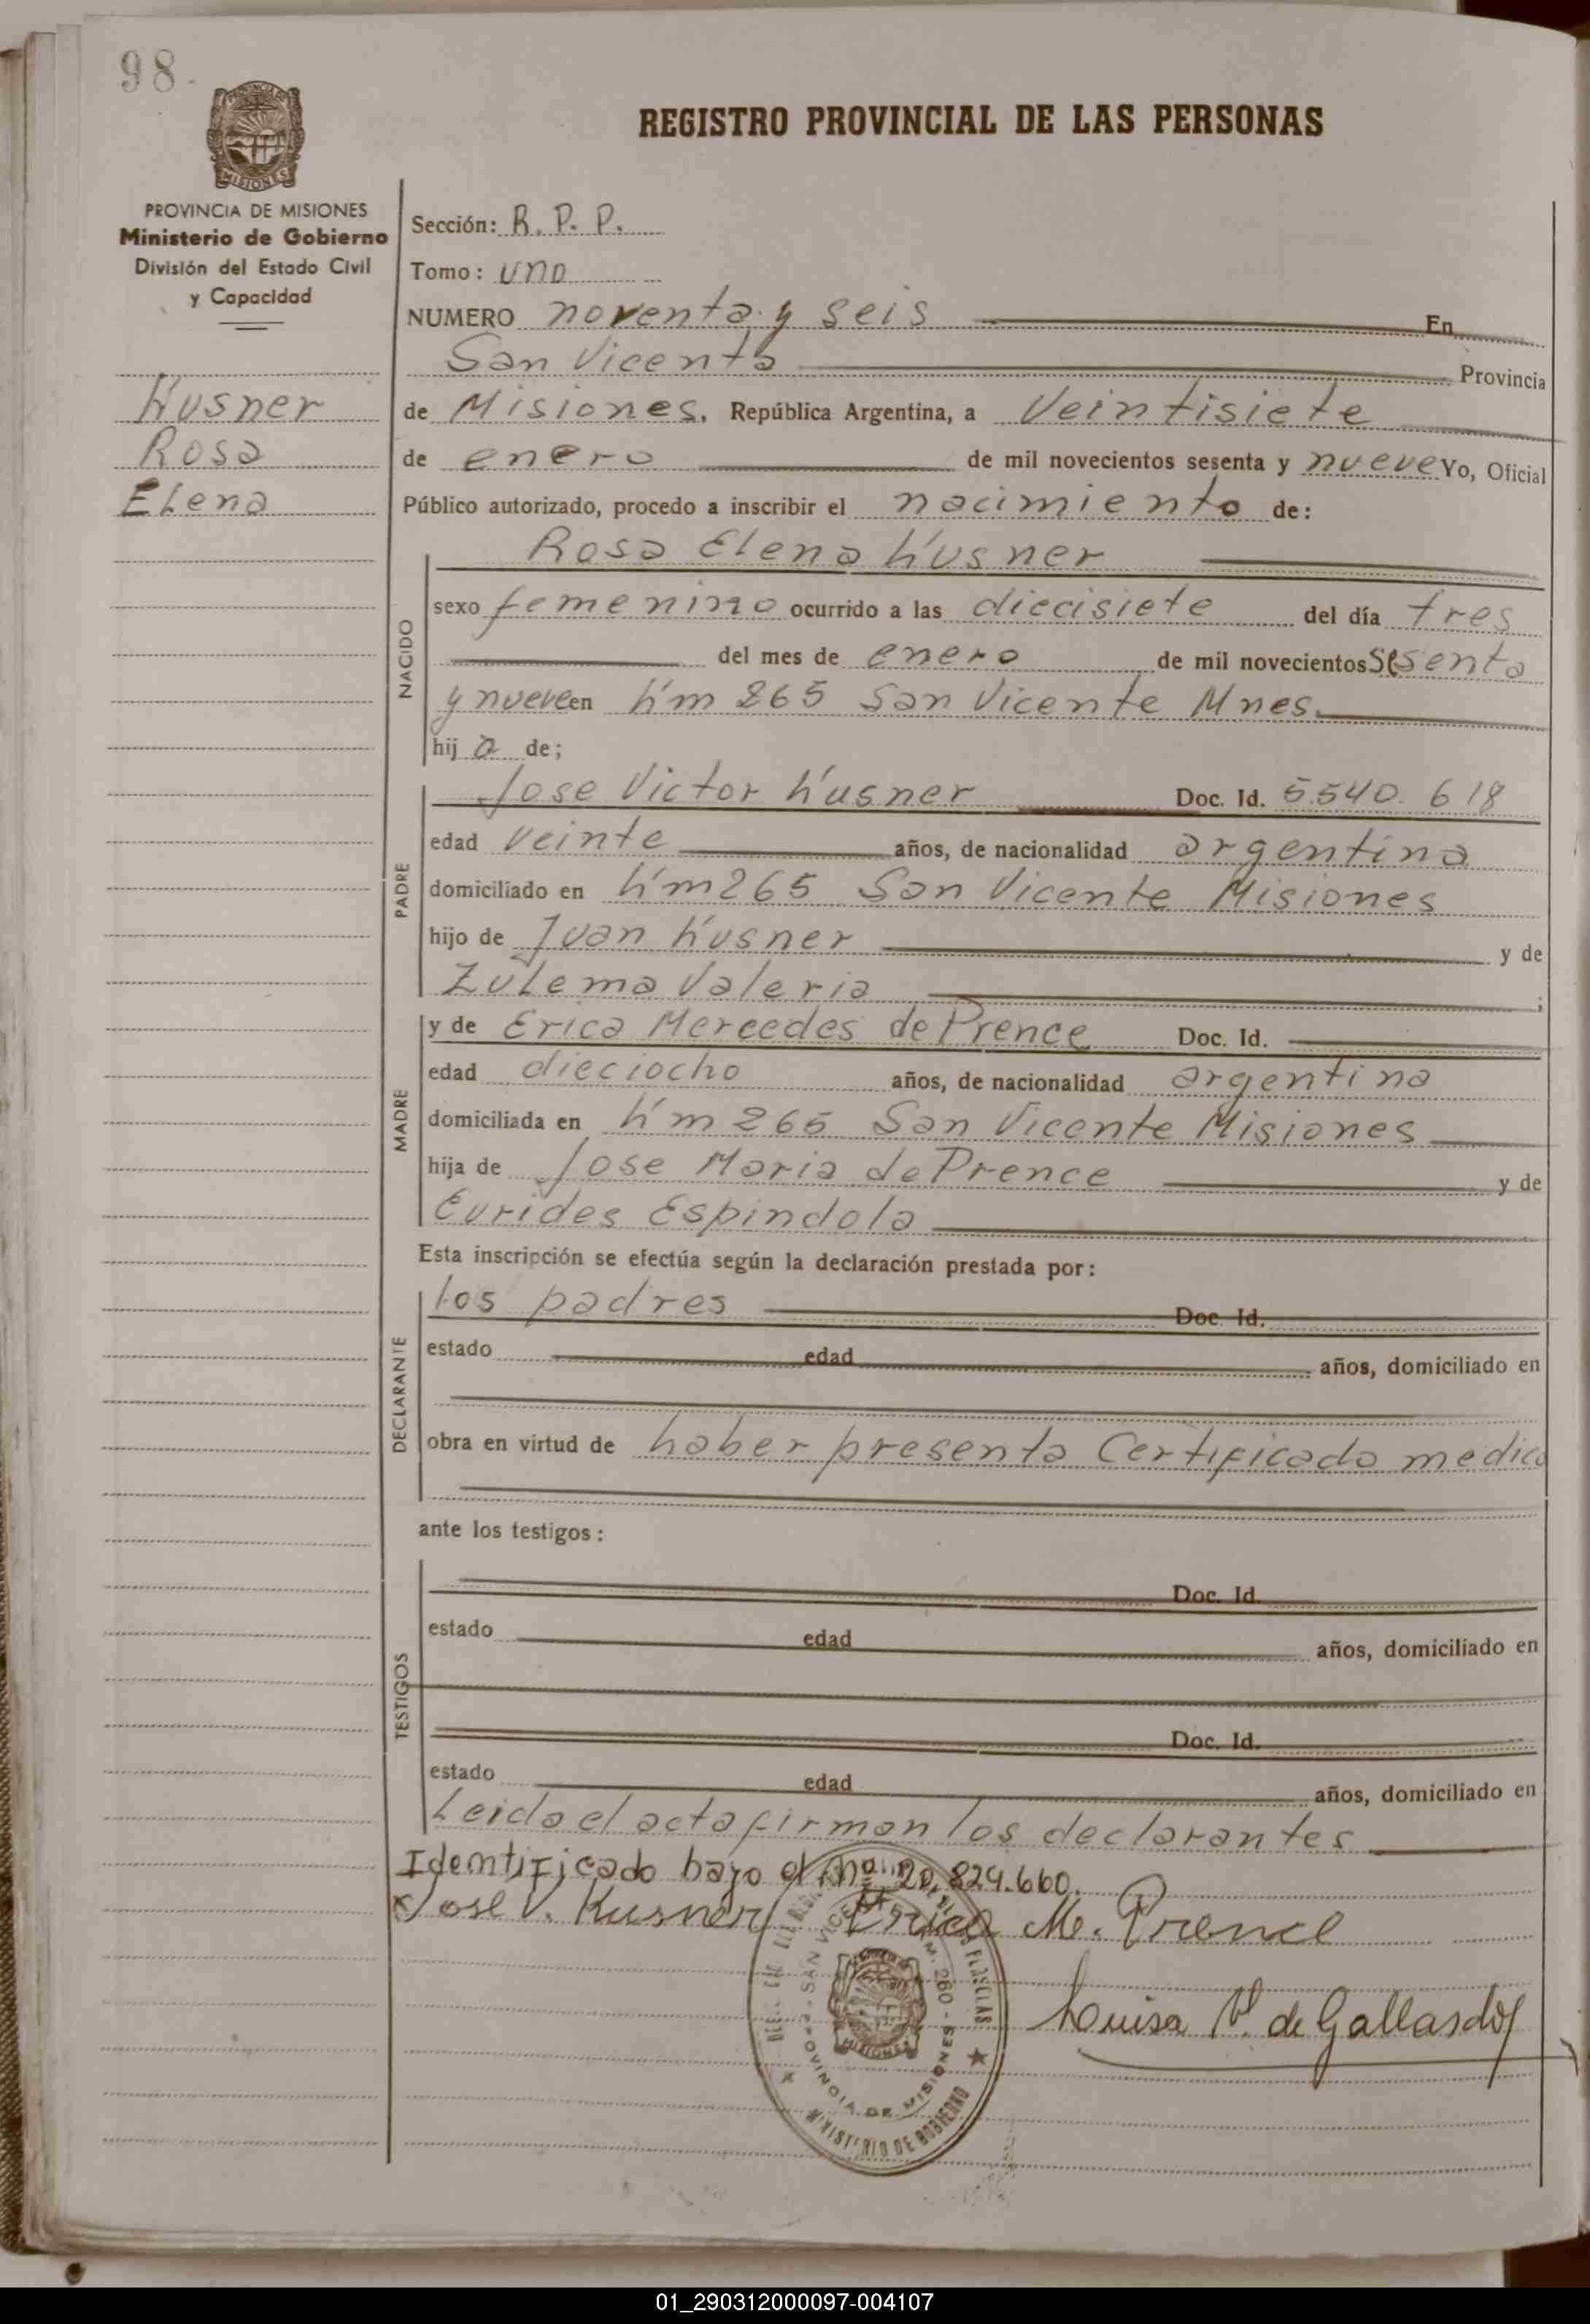 98.
REGISTRO PROVINCIAL DE LAS PERSONAS
MISIONES
PROVINCIA DE MISIONES
Ministerio de Gobierno
División del Estado Civil
y Capacidad
Kusner
Rosa
Elena
Sección: R. P. P.
Tomo: uno
NUMERO noventa y seis En
San Vicente Provincia
de Misiones. República Argentina, a Veintisiete
de enero de mil novecientos sesenta y nueve Yo, Oficial
Público autorizado, procedo a inscribir el nacimiento de:
NACIDO
Rosa Elena Kusner
sexo femenino ocurrido a las diecisiete del día tres
del mes de enero de mil novecientos sesenta
y nueve en Km 265 San Vicente Mnes.
hij a de;
PADRE
Jose Victor Kusner Doc. Id. 5.540.618
edad veinte años, de nacionalidad argentina
domiciliado en Km 265 San Vicente Misiones
hijo de Juan Kusner y de
Zulema Valeria ;
MADRE
y de Erica Mercedes de Prence Doc. Id.
edad dieciocho años, de nacionalidad argentina
domiciliada en Km 265 San Vicente Misiones
hija de Jose Maria de Prence y de
Eurides Espindola
Esta inscripción se efectúa según la declaración prestada por:
DECLARANTE
los padres Doc. Id.
estado edad años, domiciliado en
obra en virtud de haber presenta Certificado medico
ante los testigos:
TESTIGOS
Doc. Id.
estado edad años, domiciliado en
Doc. Id.
estado edad años, domiciliado en
Leida el acta firman los declarantes
Identificado bajo el nº 20.824.660.
Jose V. Kusner Erica M. Prence
Louisa V. de Gallardo
SAN VICENTE KM. 260 - PROVINCIA DE MISIONES
MISIONES
MINISTERIO DE GOBIERNO
01_290312000097-004107